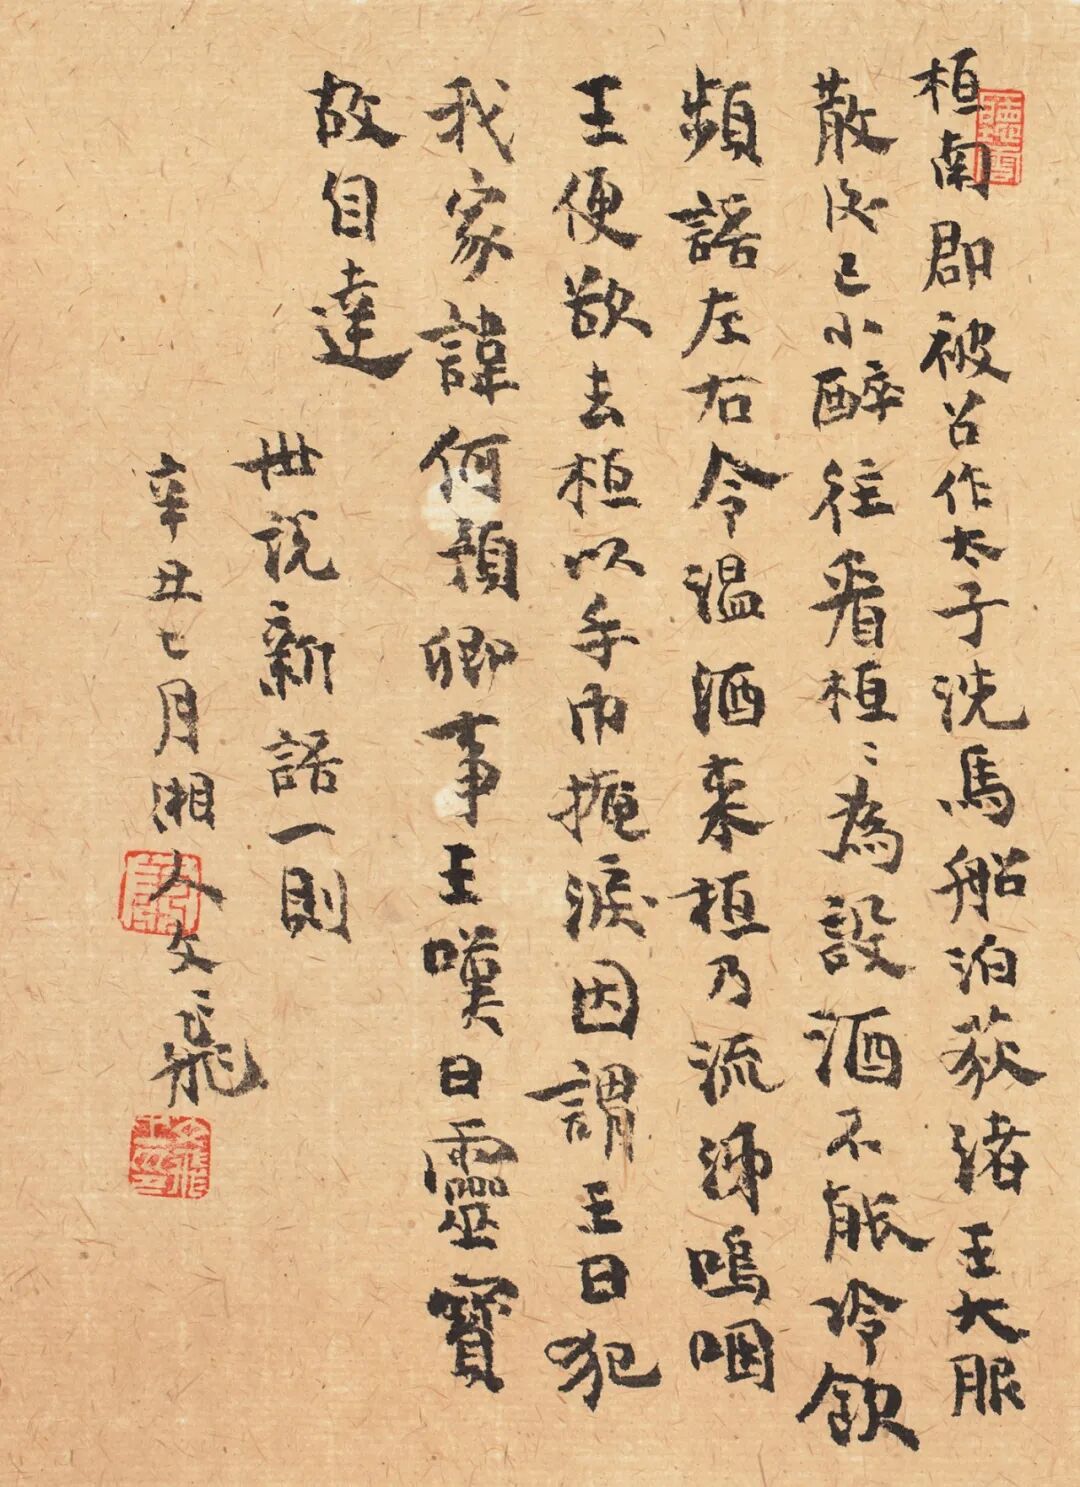 桓南郡被召作太子洗馬船泊荻渚王大服
散後已小醉往看桓〻為設酒不能冷飲
頻語左右令温酒来桓乃流涕嗚咽
王便欲去桓以手巾掩淚因謂王曰犯
我家諱何預卿事王嘆曰靈寶
故自達
世説新語一則
辛丑七月湘人文飛